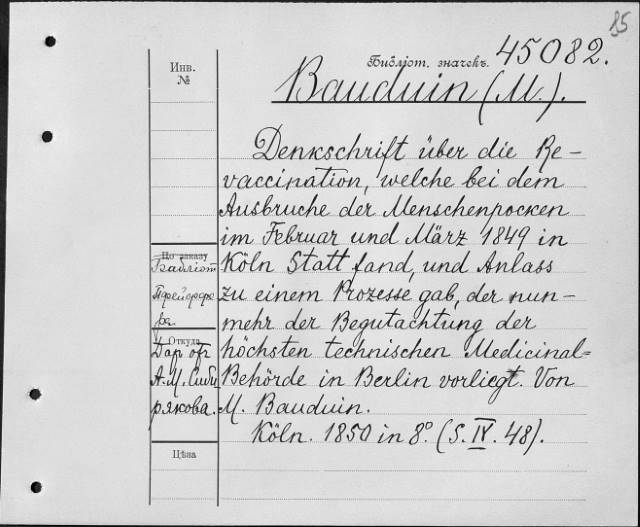 85
Библіот. значекъ. 45082.
Инв.
№
Bauduin (M.).
Denkschrift über die Re-
vaccination, welche bei dem
Ausbruche der Menschenpocken
im Februar und März 1849 in
Köln Statt fand, und Anlass
zu einem Prozesse gab, der nun-
mehr der Begutachtung der
höchsten technischen Medicinal=
Behörde in Berlin vorliegt. Von
M. Bauduin.
Köln. 1850 in 8º. (S. IV. 48).
По заказу
Библіот
Пфейффе
ра
Откуда
Дар от
А. М. Сиби
рякова.
Цѣза